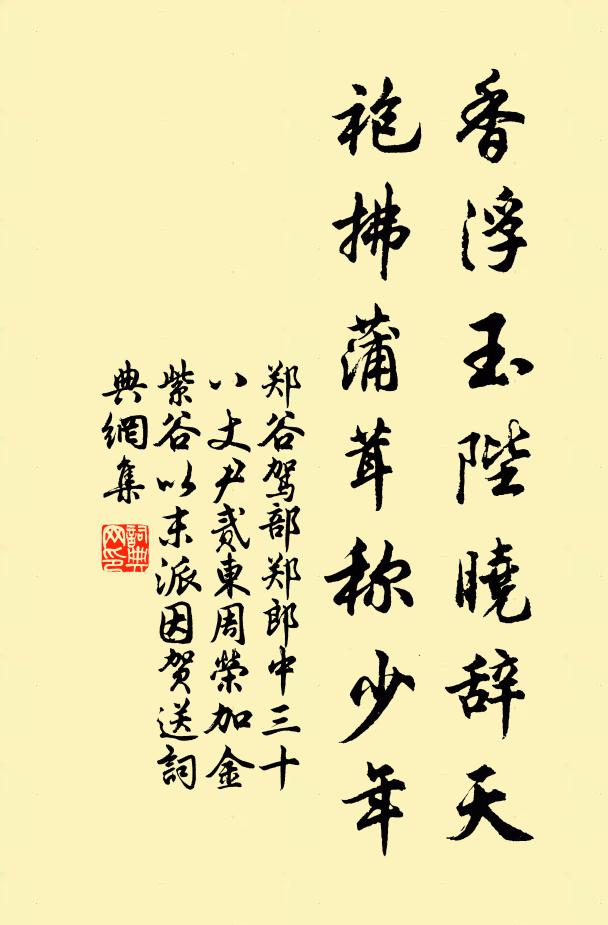 香浮玉陛晓辞天
袍拂蒲茸称少年
郑谷驾部郑郎中三十
八丈尹贰東周榮加金
紫谷以末派因贺送詞
典網集
詞典网印